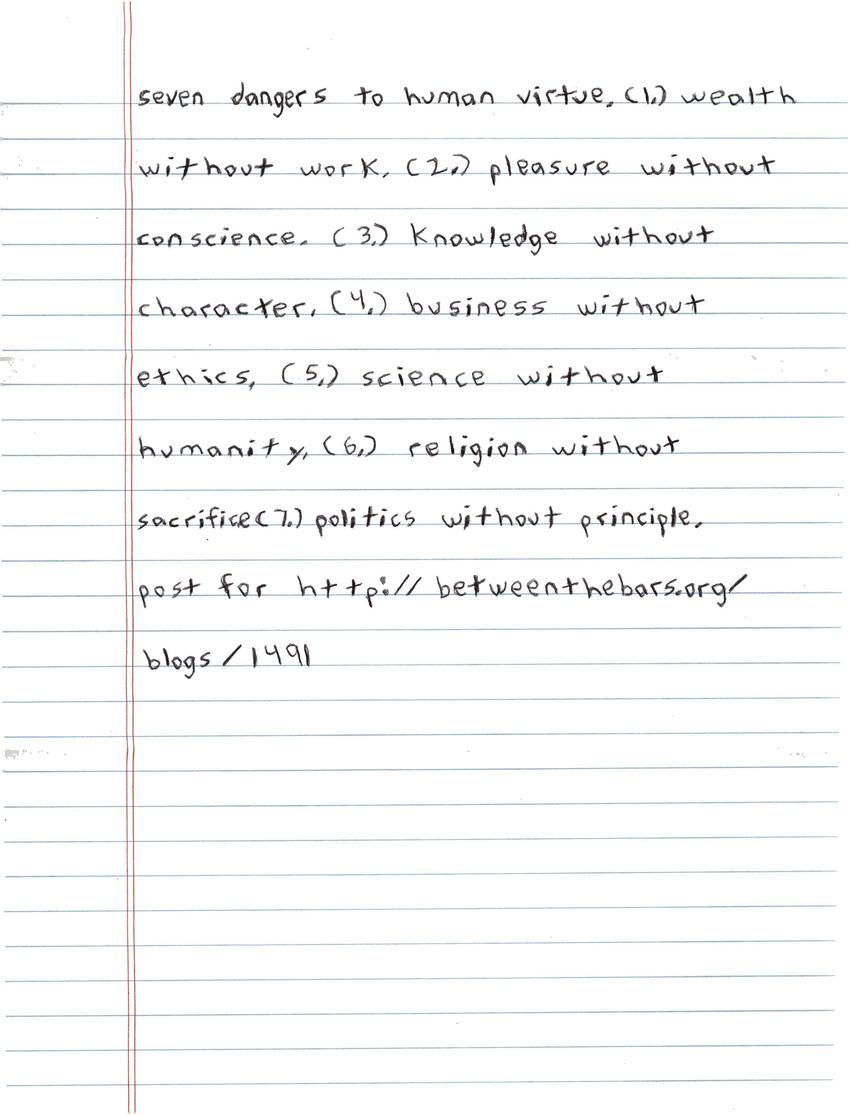 seven dangers to human virtue, (1.) wealth
without work, (2.) pleasure without
conscience. (3.) Knowledge without
character, (4.) business without
ethics, (5.) science without
humanity, (6.) religion without
sacrifice (7.) politics without principle.
post for http://betweenthebars.org/
blogs/1491